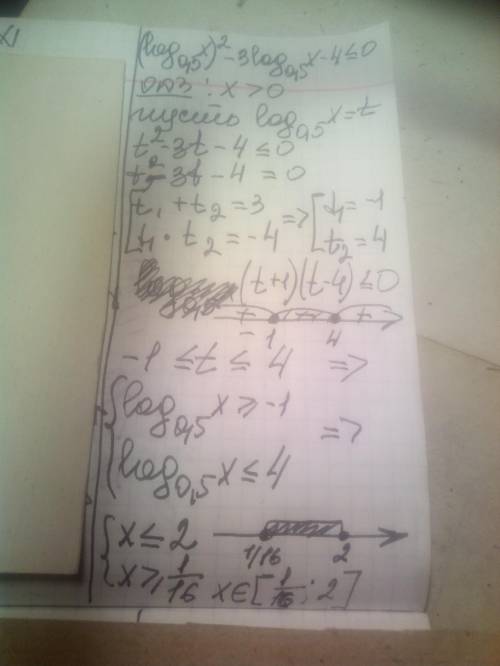 (log₀,₅x)² - 3log₀,₅x - 4 ≤ 0
ОДЗ: x > 0
пусть log₀,₅x = t
t² - 3t - 4 ≤ 0
t² - 3t - 4 = 0
[t₁ + t₂ = 3 => [t₁ = -1
[t₁ · t₂ = -4 [t₂ = 4
(t+1)(t-4) ≤ 0
-1 4
-1 ≤ t ≤ 4 =>
{log₀,₅x ≥ -1 =>
{log₀,₅x ≤ 4
{x ≤ 2 1/16 2
{x ≥ 1/16 x ∈ [1/16; 2]